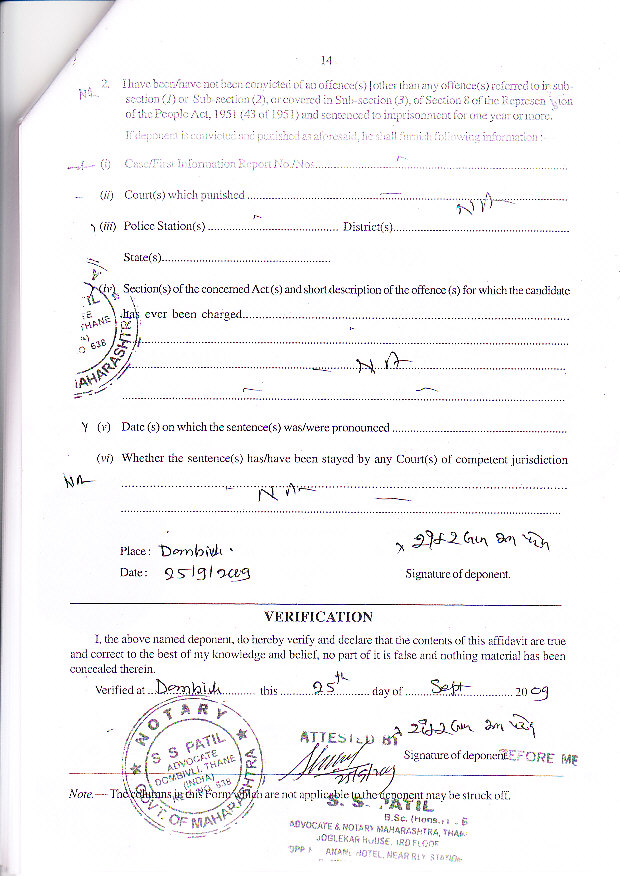 14
NA
2. I have been/have not been convicted of an offence(s) [other than any offence(s) referred to in sub-
section (1) or Sub-section (2), or covered in Sub-section (3), of Section 8 of the Represen on
of the People Act, 1951 (43 of 1951) and sentenced to imprisonment for one year or more.
If deponent is convicted and punished as aforesaid, he shall furnish following information :-
(i) Case/First Information Report No./Nos.
(ii) Court(s) which punished
NA
(iii) Police Station(s) District(s)
State(s)
(iv) Section(s) of the concerned Act(s) and short description of the offence (s) for which the candidate
has ever been charged
THANE
638
MAHARASHTRA
NA
(v) Date (s) on which the sentence(s) was/were pronounced
(vi) Whether the sentence(s) has/have been stayed by any Court(s) of competent jurisdiction
NA
NA
Place : Dombivli
Date : 25/9/2009
Signature of deponent.
VERIFICATION
I, the above named deponent, do hereby verify and declare that the contents of this affidavit are true
and correct to the best of my knowledge and belief, no part of it is false and nothing material has been
concealed therein.
Verified at Dombivli this 25th day of Sept 2009
NOTARY
S S PATIL
ADVOCATE
DOMBIVLI, THANE
(INDIA)
638
GOVT. OF MAHARASHTRA
ATTESTED BY
Signature of deponent
BEFORE ME
25/9/2009
Note.— The columns in this Form which are not applicable to the deponent may be struck off.
S. S. PATIL
B.Sc. (Hons.)
ADVOCATE & NOTARY MAHARASHTRA, THANE
JOGLEKAR HOUSE, 3RD FLOOR
OPP HOTEL, NEAR RLY STATION